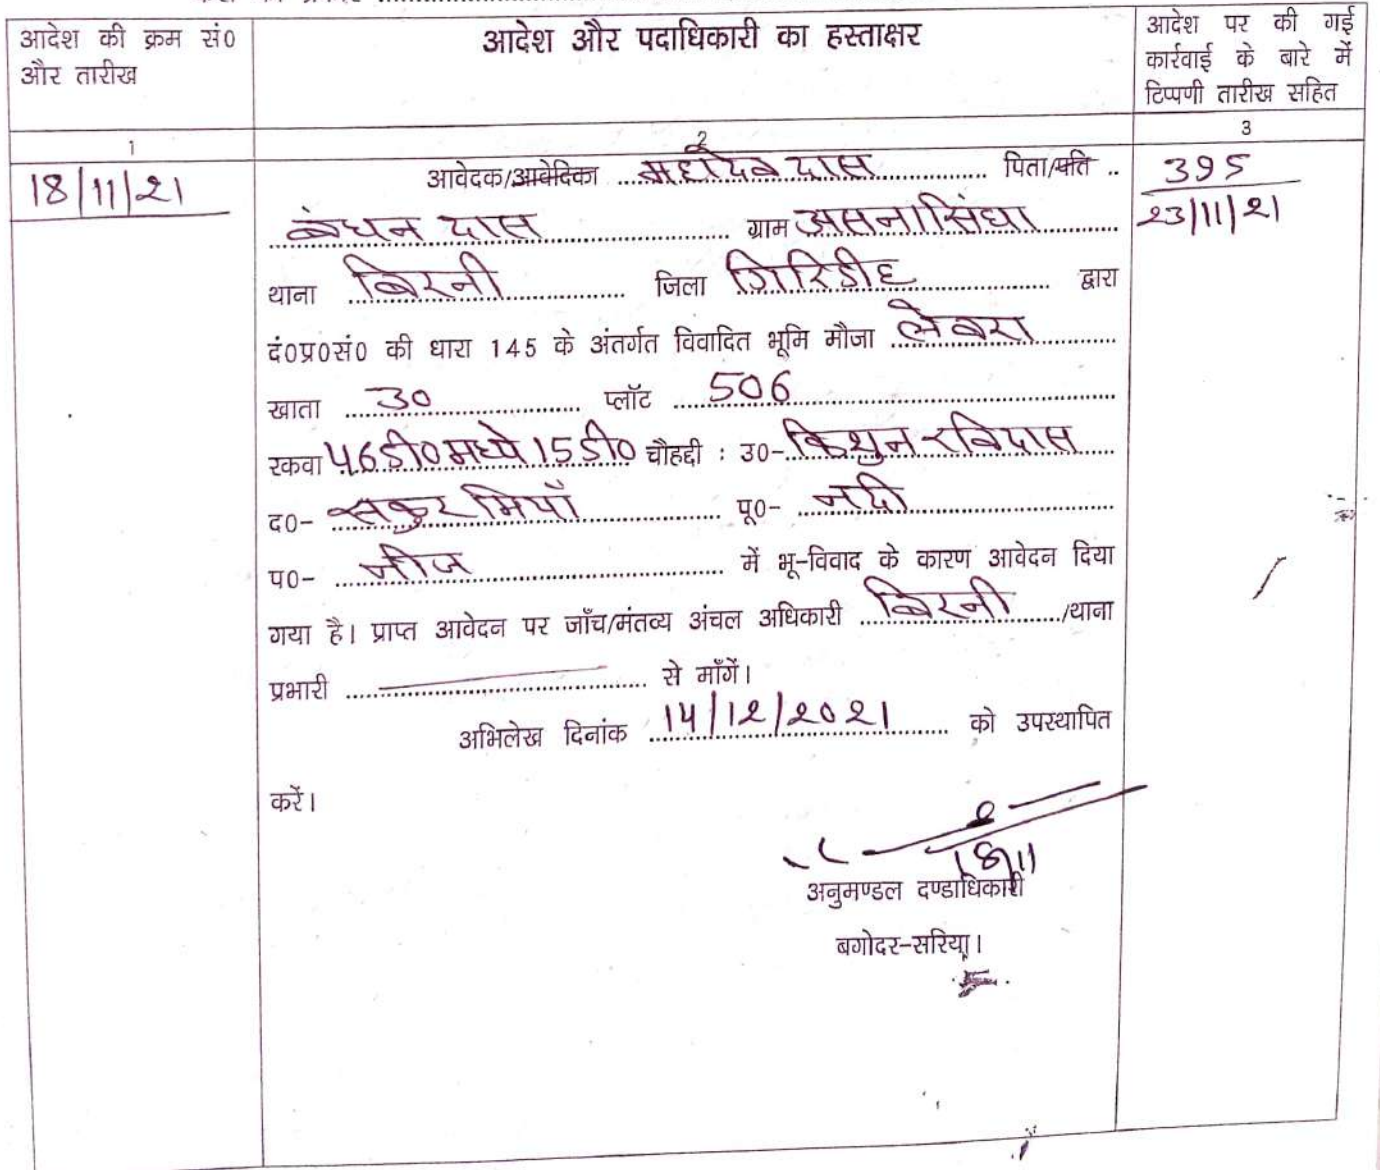 आदेश की क्रम सं0 और तारीख
आदेश और पदाधिकारी का हस्ताक्षर
आदेश पर की गई कार्रवाई के बारे में टिप्पणी तारीख सहित
1
2
3
18/11/21
395
23/11/21
आवेदक/आवेदिका महादेव दास पिता/पति ..
बंधन दास ग्राम असनासिंघा
थाना बिरनी जिला गिरिडीह द्वारा
दं0प्र0सं0 की धारा 145 के अंतर्गत विवादित भूमि मौजा लेबरा
खाता 30 प्लॉट 506
रकवा 46डी0 मध्ये 15डी0 चौहद्दी : उ0- किशुन रविदास
द0- सकुर मियाँ पू0- नदी
प0- नीज में भू-विवाद के कारण आवेदन दिया
गया है। प्राप्त आवेदन पर जाँच/मंतव्य अंचल अधिकारी बिरनी /थाना
प्रभारी से माँगें।
अभिलेख दिनांक 14/12/2021 को उपस्थापित
करें।
18/11
अनुमण्डल दण्डाधिकारी
बगोदर-सरिया।